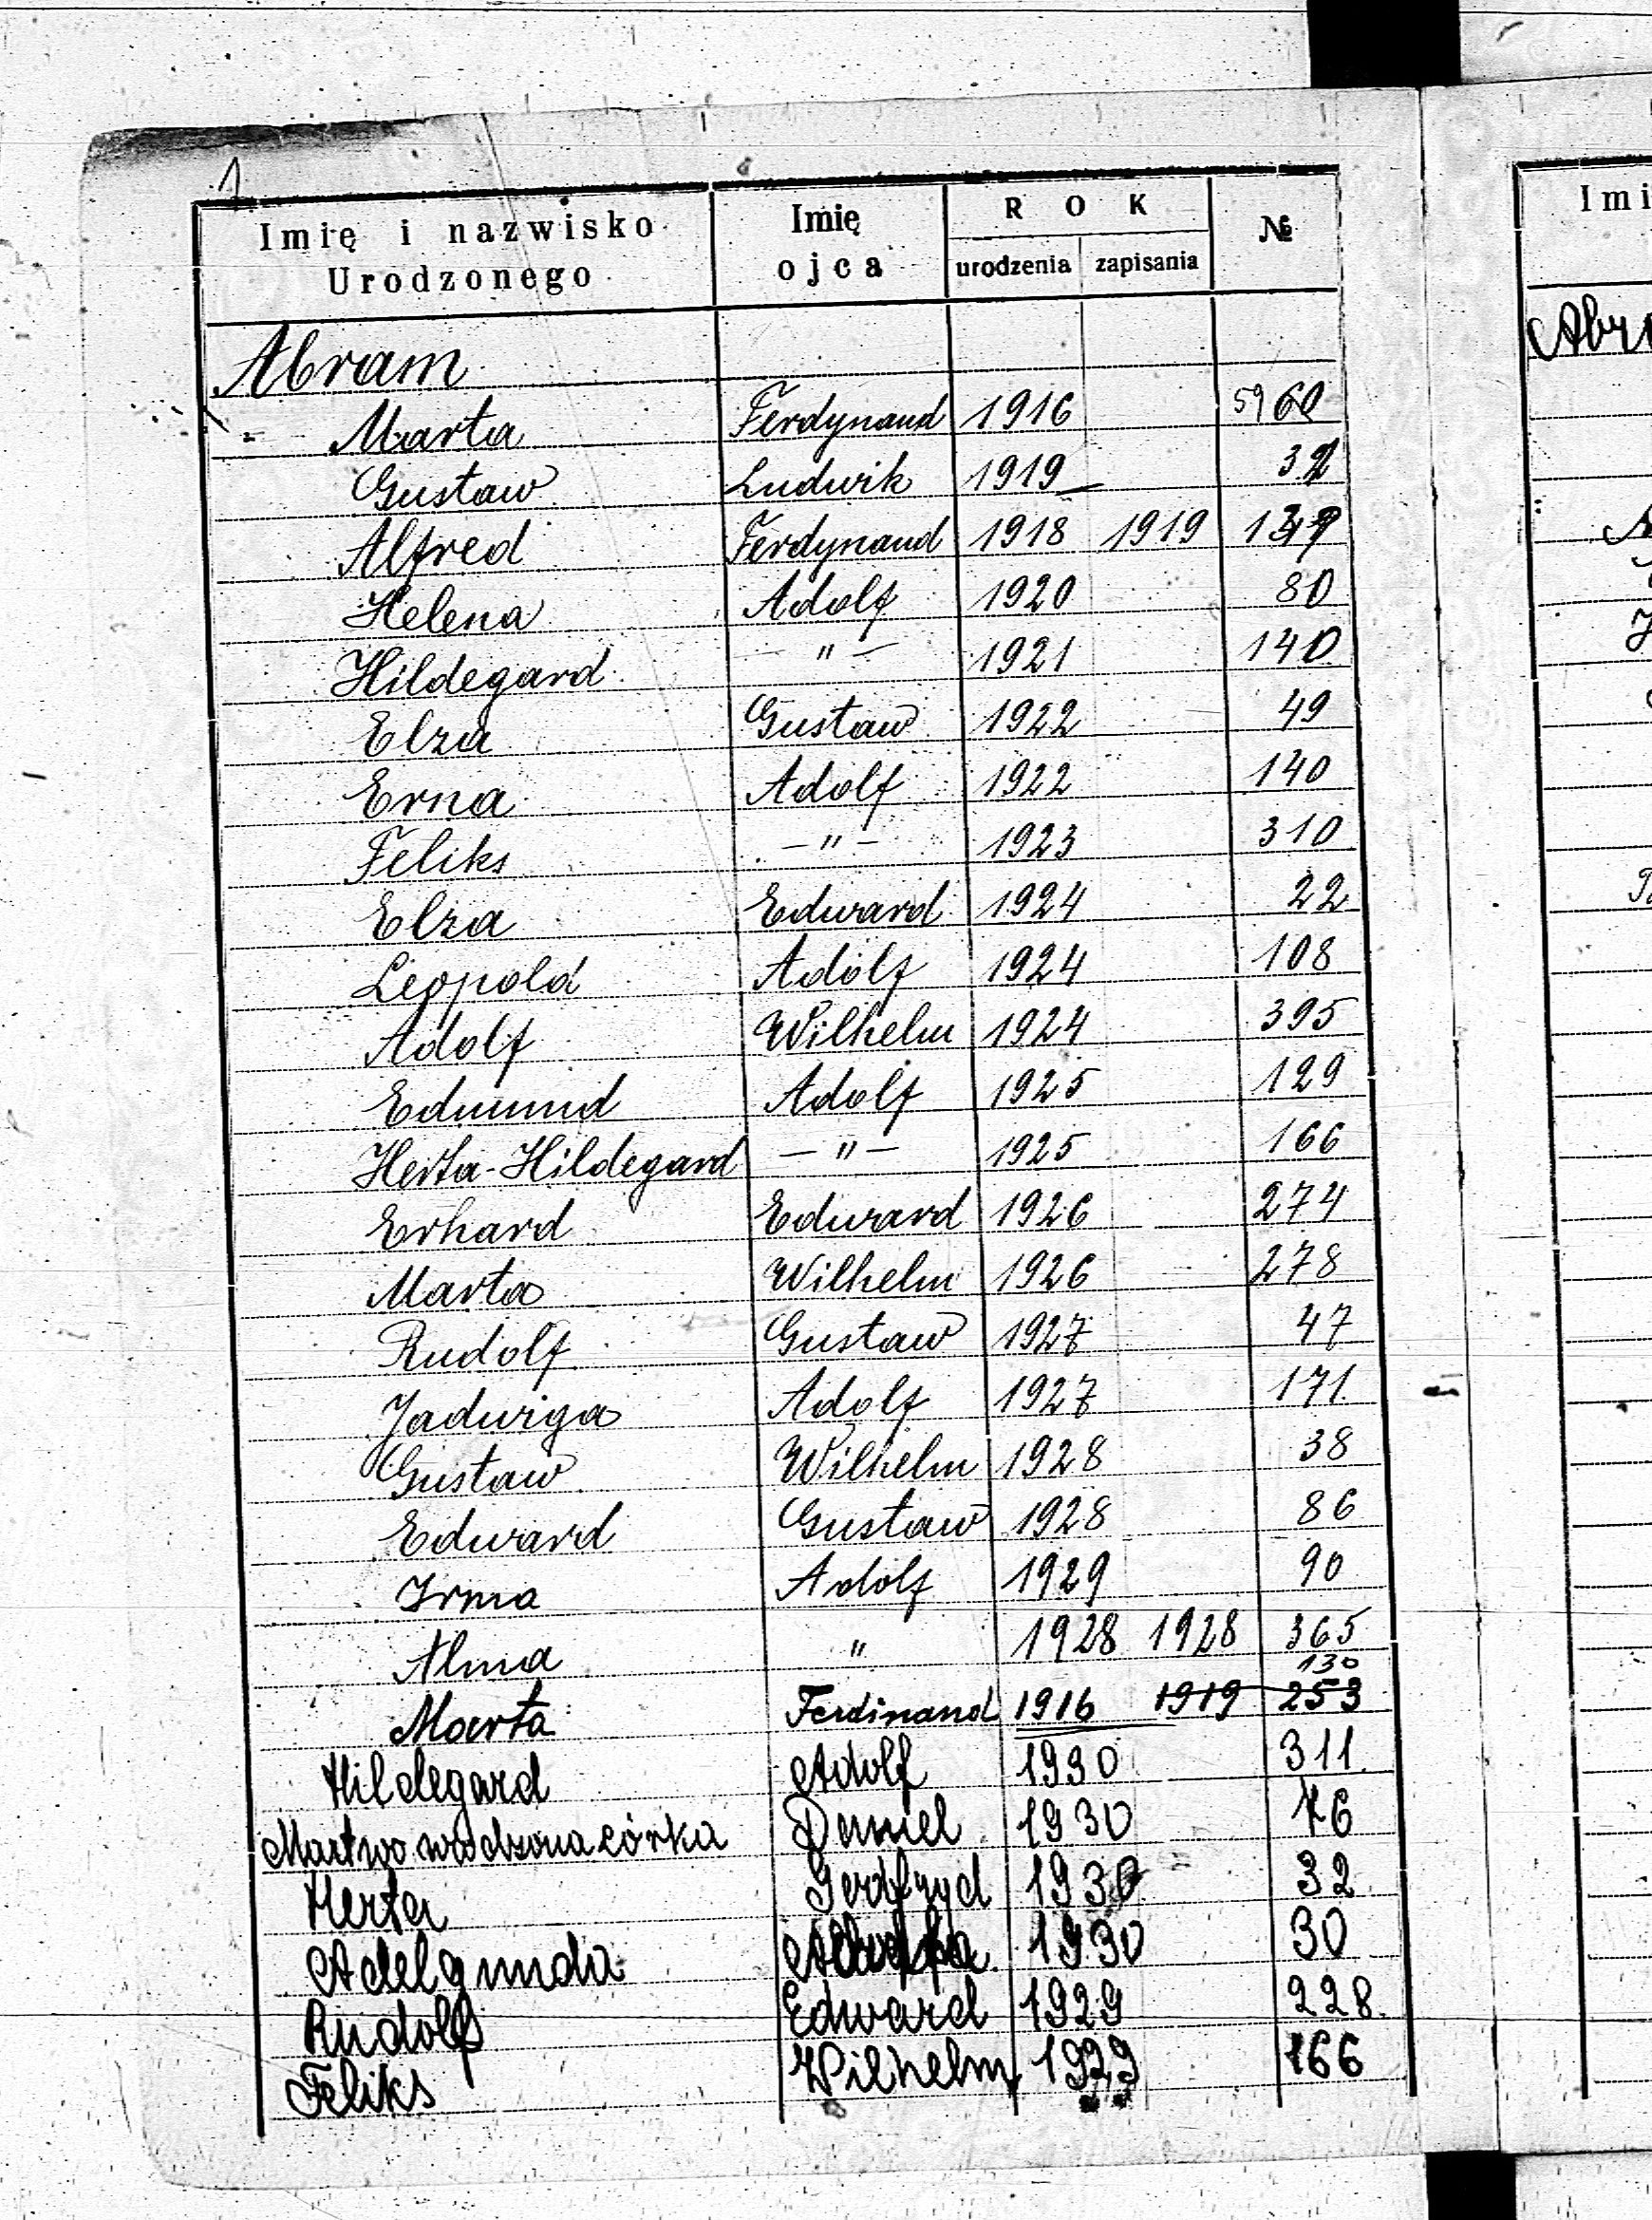 1
Imię i nazwisko Urodzonego Imię ojca ROK urodzenia zapisania №
Abram
Marta Ferdynand 1916 5960
Gustaw Ludwik 1919 32
Alfred Ferdynand 1918 1919
Helena Adolf 1920 80
Hildegard — " — 1921 140
Elza Gustaw 1922 49
Erna Adolf 1922 140
Feliks — " — 1923 310
Elza Edward 1924 22
Leopold Adolf 1924 108
Adolf Wilhelm 1924 395
Edmund Adolf 1925 129
Herta-Hildegard — " — 1925 166
Erhard Edward 1926 274
Marta Wilhelm 1926 278
Rudolf Gustaw 1927 47
Jadwiga Adolf 1927 171
Gustaw Wilhelm 1928 38
Edward Gustaw 1928 86
Irma Adolf 1929 90
Alma " 1928 1928 365
130
Marta Ferdinand 1916 1919 253
Hildegard Adolf 1930 311
Martwo urodzona córka Daniel 1930 46
Herta 1930 32
Adelgunda 1930 30
Rudolf Edward 1929 228
Feliks Wilhelm 1929 166
Imi
Abr